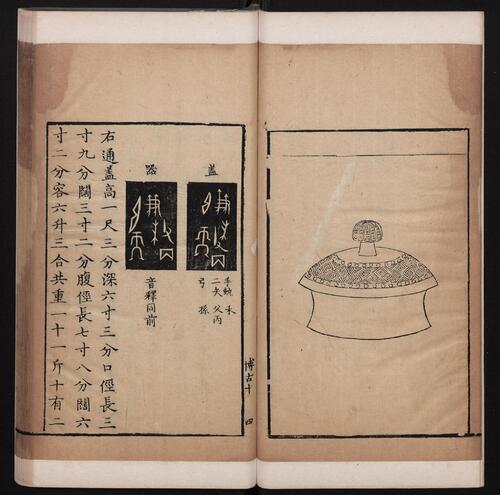 蓋
手執 禾
二矢 父丙
弓 孫
器
音釋同前
右通蓋高一尺三分深六寸三分口徑長三
寸九分闊三寸二分腹徑長七寸八分闊六
寸二分容六升三合共重一十一斤十有二
博古十 四